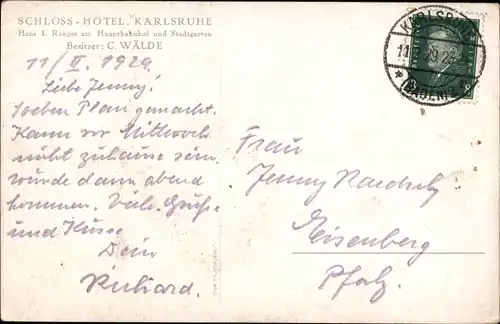 SCHLOSS-HOTEL, KARLSRUHE
Haus I. Ranges am Hauptbahnhof und Stadtgarten
Besitzer: C. WÄLDE
11/II. 1929
Liebe Jenny!
soeben Plan gemacht.
Kann vor Mittwoch
nicht zuhause sein
würde dann abend
kommen. Viele Grüße
und Küsse
Dein
Richard.
KARLSRUHE
(BADEN)
Frau
Jenny
Eisenberg
Pfalz.